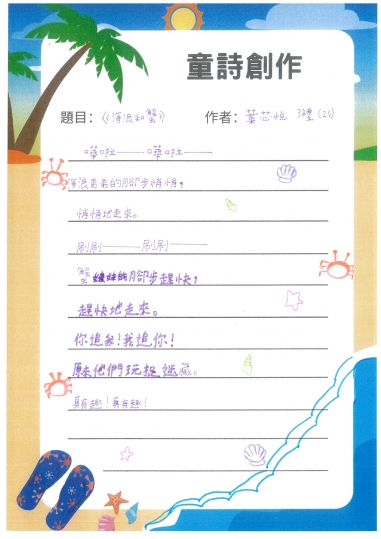 童詩創作
題目：《海浪和蟹》 作者：葉芯悅 3禮(23)
嘩啦——嘩啦——
海浪哥哥的腳步悄悄，
悄悄地走來。
刷刷——刷刷——
蟹妹妹的腳步趕快，
趕快地走來。
你追我！我追你！
原來他們玩捉迷藏。
真有趣！真有趣！